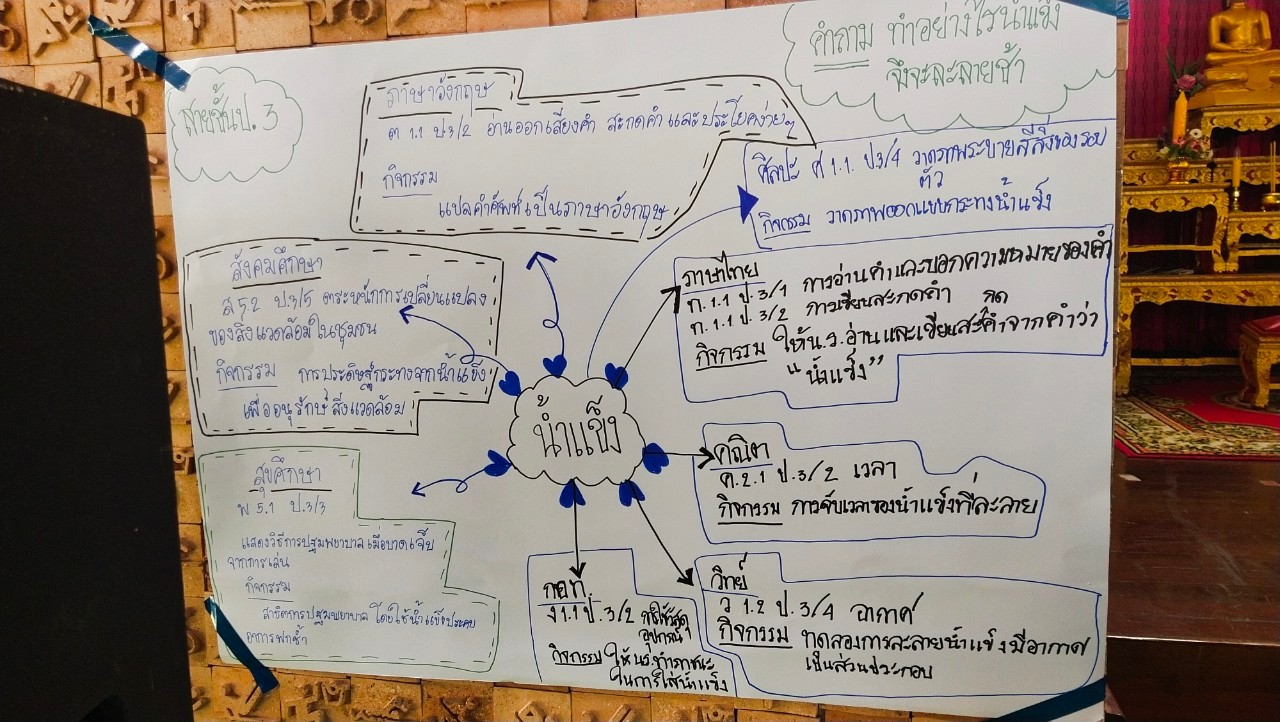 สายชั้นป. 3
คำถาม ทำอย่างไรน้ำแข็ง
จึงจะละลายช้า
ภาษาอังกฤษ
ต 1.1 ป3/2 อ่านออกเสียงคำ สะกดคำ และประโยคง่ายๆ
กิจกรรม
แปลคำศัพท์เป็นภาษาอังกฤษ
ศิลปะ ศ 1.1. ป3/4 วาดภาพระบายสีสิ่งของรอบ
ตัว
กิจกรรม วาดภาพออกแบบกระทงน้ำแข็ง
สังคมศึกษา
ส 5.2 ป.3/5 ตระหนักการเปลี่ยนแปลง
ของสิ่งแวดล้อมในชุมชน
กิจกรรม การประดิษฐ์กระทงจากน้ำแข็ง
เพื่ออนุรักษ์สิ่งแวดล้อม
ภาษาไทย
ท.1.1 ป.3/1 การอ่านคำและบอกความหมายของคำ
ท.1.1 ป.3/2 การเขียนสะกดคำ
กิจกรรม ให้น.ร.อ่านและเขียนสะกดคำจากคำว่า
"น้ำแข็ง"
น้ำแข็ง
คณิต
ค.2.1 ป.3/2 เวลา
กิจกรรม การจับเวลาของน้ำแข็งที่ละลาย
สุขศึกษา
พ 5.1 ป.3/3
แสดงวิธีการปฐมพยาบาลเมื่อบาดเจ็บ
จากการเล่น
กิจกรรม
สาธิตการปฐมพยาบาล โดยใช้น้ำแข็งประคบ
อาการฟกช้ำ
กอท.
ง1.1 ป.3/2 การใช้วัสดุ
อุปกรณ์
กิจกรรม ให้นร.ทำภาชนะ
ในการใส่น้ำแข็ง
วิทย์
ว 1.2 ป.3/4 อากาศ
กิจกรรม ทดลองการละลายน้ำแข็งมีอากาศ
เป็นส่วนประกอบ